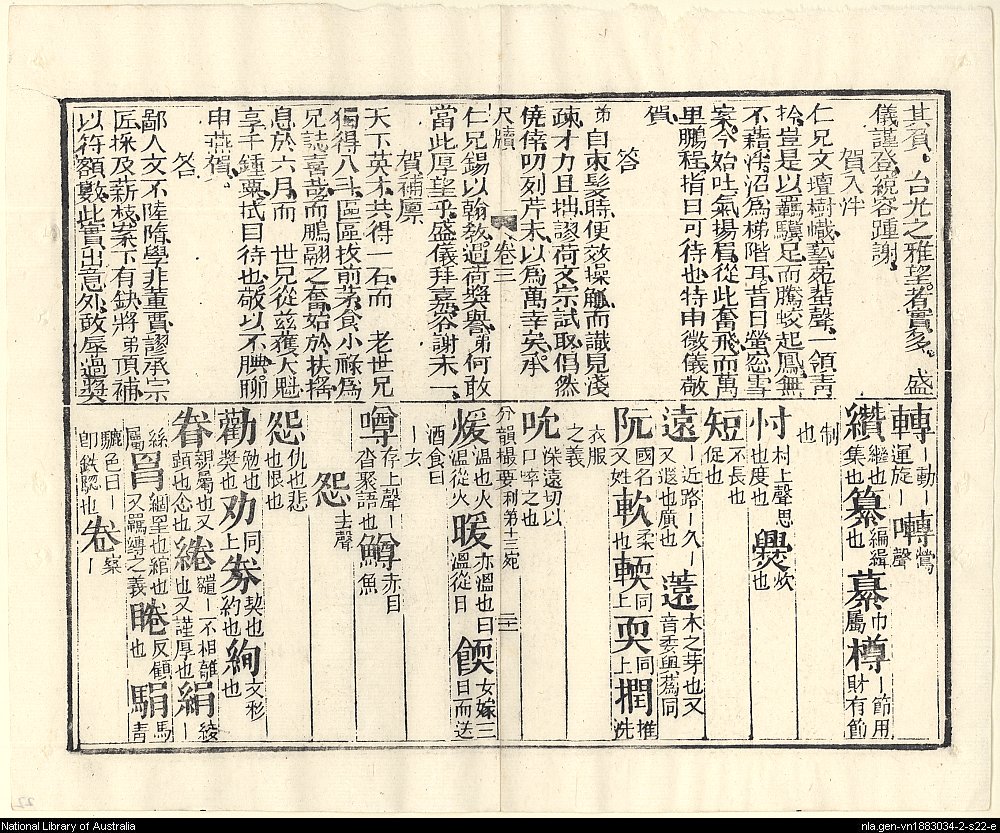 其負台光之雅望者實多盛
儀謹登統容踵謝
賀入泮
仁兄文壇樹幟藝苑蜚聲一領青
衿豈是以羈驥足而騰蛟起鳳無
不藉泮沼為梯階耳昔日螢窓雪
案今始吐氣揚眉從此奮飛而萬
里鵬程指日可待也特申微儀敬
賀
答
弟自束髪時便效操觚而識見淺
疎才力且拙謬荷文宗試取倡然
僥倖叨列芹末以為萬幸矣承
尺牘 卷三
仁兄錫以翰教過荷奬譽弟何敢
當此厚望乎盛儀拜嘉容謝未一
賀補廩
天下英才共得一石而 老世兄
獨得八斗區區拔前茅食小祿為
兄誌喜哉而鵬翮之奮始於扶搖
息於六月而 世兄從茲獲人魁
享千鍾粟拭目待也敬以不腆聊
申燕賀
答
鄙人文不陸隋學非董賈謬承宗
匠採及薪棫案下有缺將弟頂補
以符額數此實出意外敢辱過奬
轉 運旋ー ー動ー 囀 鶯聲
纘 繼也集也 纂 編緝也 綦 巾屬 樽 ー節用財有節
制也
忖 村上聲思也度也 爨 炊也
短 不長也促也
遠 ー近路ー久ー又遐也廣也 薳 木之芽也又音委與蔿同
阮 國名又姓 軟 柔也 輭 同上 耎 同上 撋 推洗
衣服之義
吮 徐遠切以口啐之也
分韻撮要利第十三宛 二
煖 溫也火溫從火 暖 亦溫也曰溫從日 餪 女嫁三日而送
酒食曰ー女
噂 存上聲ー沓聚語也 鱒 赤目魚
怨 去聲
怨 仇也悲也恨也
勸 勉也奬也 劝 同上 券 契也約也 絢 文彩也
眷 親屬也又顧也念也 綣 繾ー不相離也又謹厚也 絹 綾ー
絲屬 罥 綱罣也綰也又羈縛之義 睠 反顧也 駽 馬青
驪色曰ー即鐵騘也 卷 案ー
National Library of Australia
nla.gen-vn1883034-2-s22-e